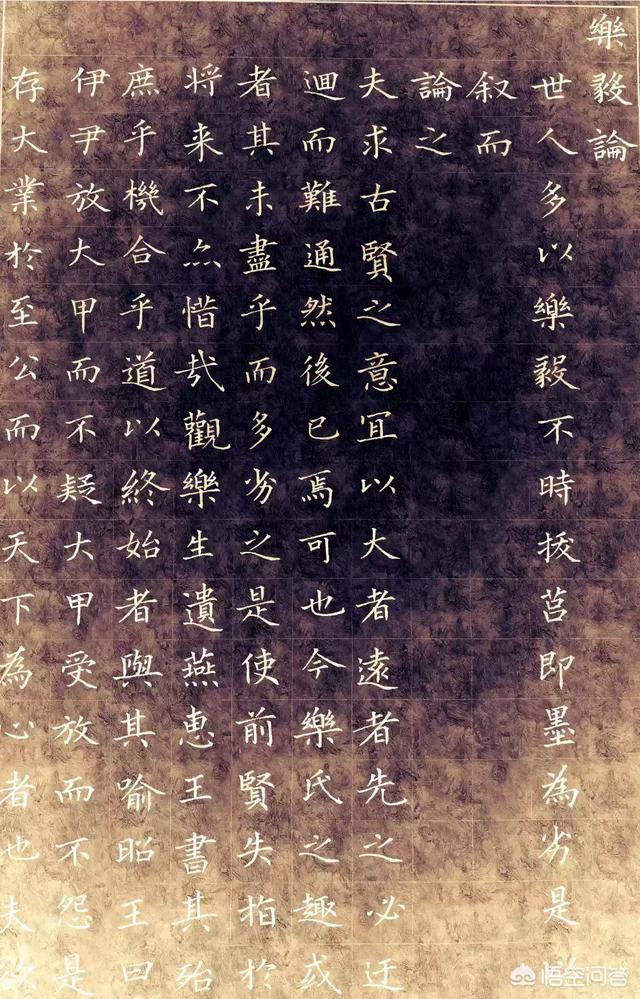 樂毅論
世人多以樂毅不時拔莒即墨為劣是
叙而
論之
夫求古賢之意宜以大者遠者先之必迂
迴而難通然後已焉可也今樂氏之趣或
者其未盡乎而多劣之是使前賢失指於
将来不亦惜哉觀樂生遺燕惠王書其殆
庶乎機合乎道以終始者與其喻昭王曰
伊尹放大甲而不疑大甲受放而不怨是
存大業於至公而以天下為心者也夫欲
悟空问答